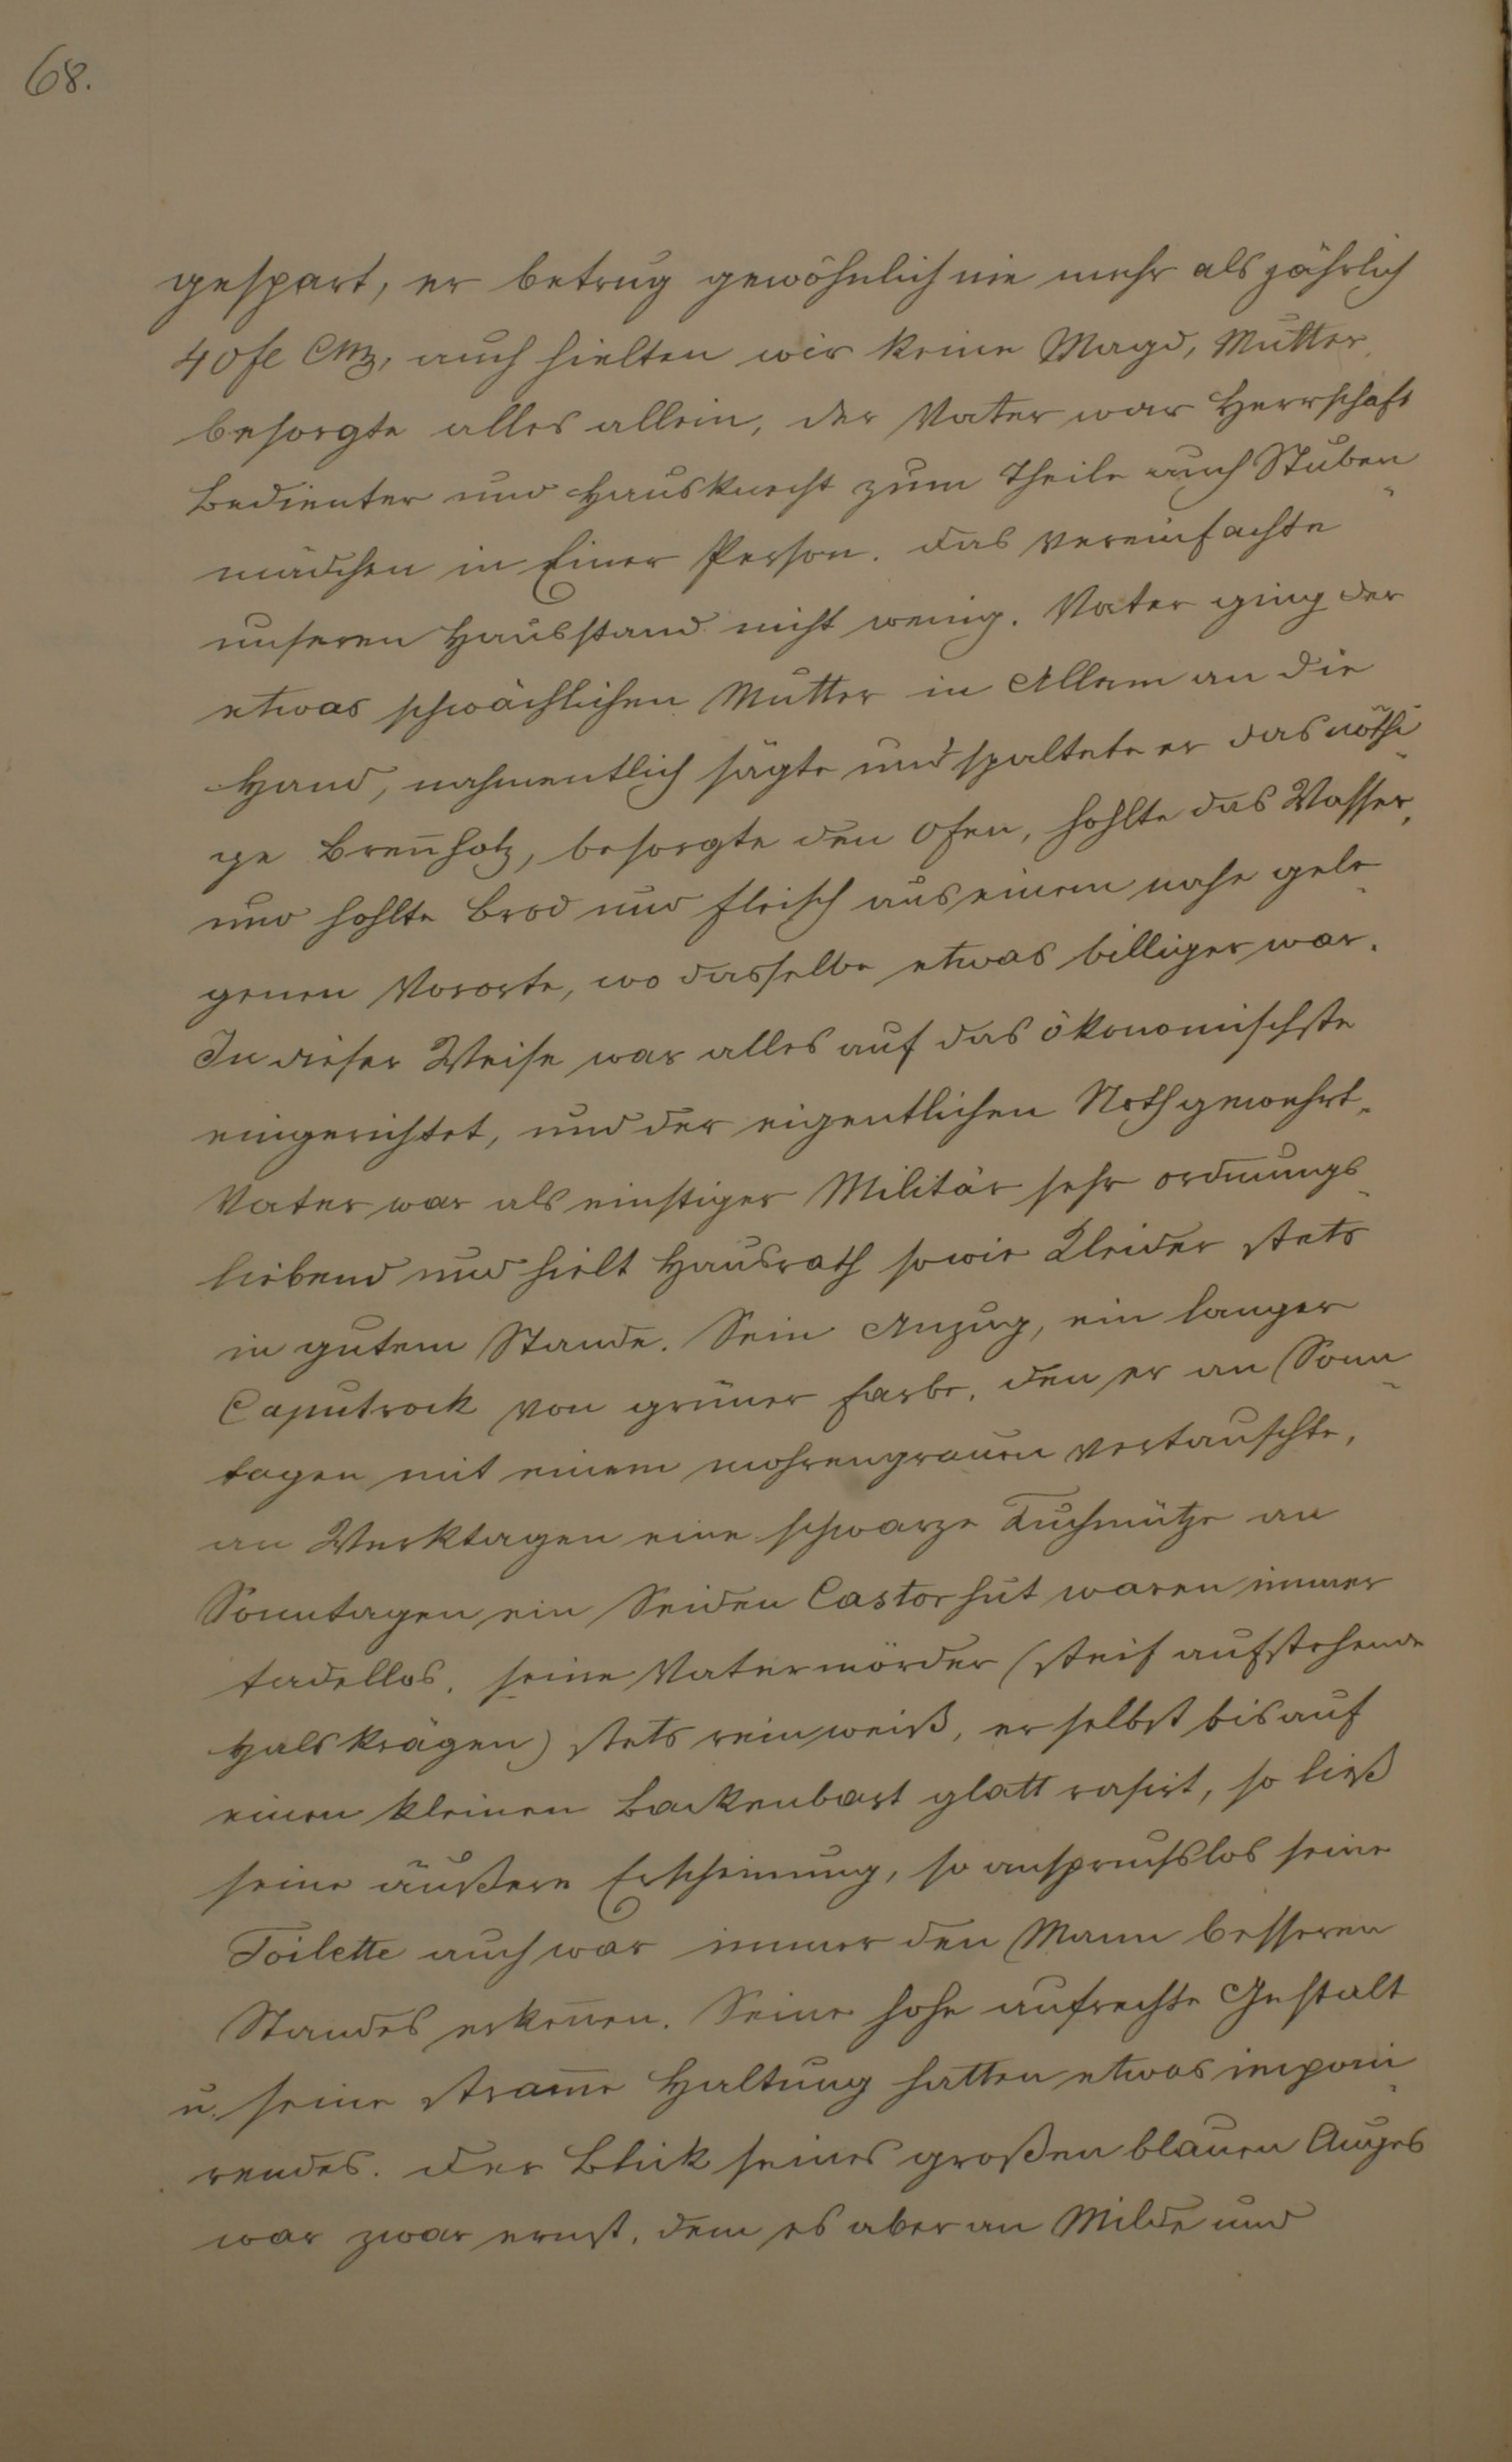 68.
gespart, er betrug gewöhnlich nie mehr als jährlich
40 fl CMz, auch hielten wir keine Magd, Mutter
besorgte alles allein, der Vater war Herrschaft
Bedienter und Hausknecht zum Theile auch Stuben
mädchen in Einer Person. das vereinfachte
unseren Hausstand nicht wenig. Vater ging der
etwas schwächlichen Mutter in Allem an die
Hand, nahmentlich sägte und spaltete er das nöthi
ge Breñholz, besorgte den Ofen, hohlte das Wasser,
und hohlte Brod und Fleisch aus einem nahe gele
genen Vororte, wo dasselbe etwas billiger war.
In dieser Weise war alles auf das ökonomischste
eingerichtet, und der eigentlichen Noth gewehrt.
Vater war als einstiger Militär sehr ordnungs
liebend und hielt Hausrath sowie Kleider stets
in gutem Stande. Sein Anzug, ein langer
Caputrock von grüner Farbe, den er an Sonn
tagen mit einem mohrengrauen vertauschte,
an Werktagen eine schwarze Tuchmütze an
Sonntagen ein Seiden Castorhut waren immer
tadellos. seine Vatermörder (steif aufstehende
Halskrägen) stets rein weiß, er selbst bis auf
einen kleinen Backenbart glatt rasirt, so ließ
seine äußere Erscheinung, so anspruchslos seine
Toilette auch war immer den Mann besseren
Standes erkeñen. Seine hohe aufrechte Gestalt
u. seine stram̃e Haltung hatten etwas imponi
rendes. der Blick seines großen blauen Auges
war zwar ernst, dem es aber an Milde und